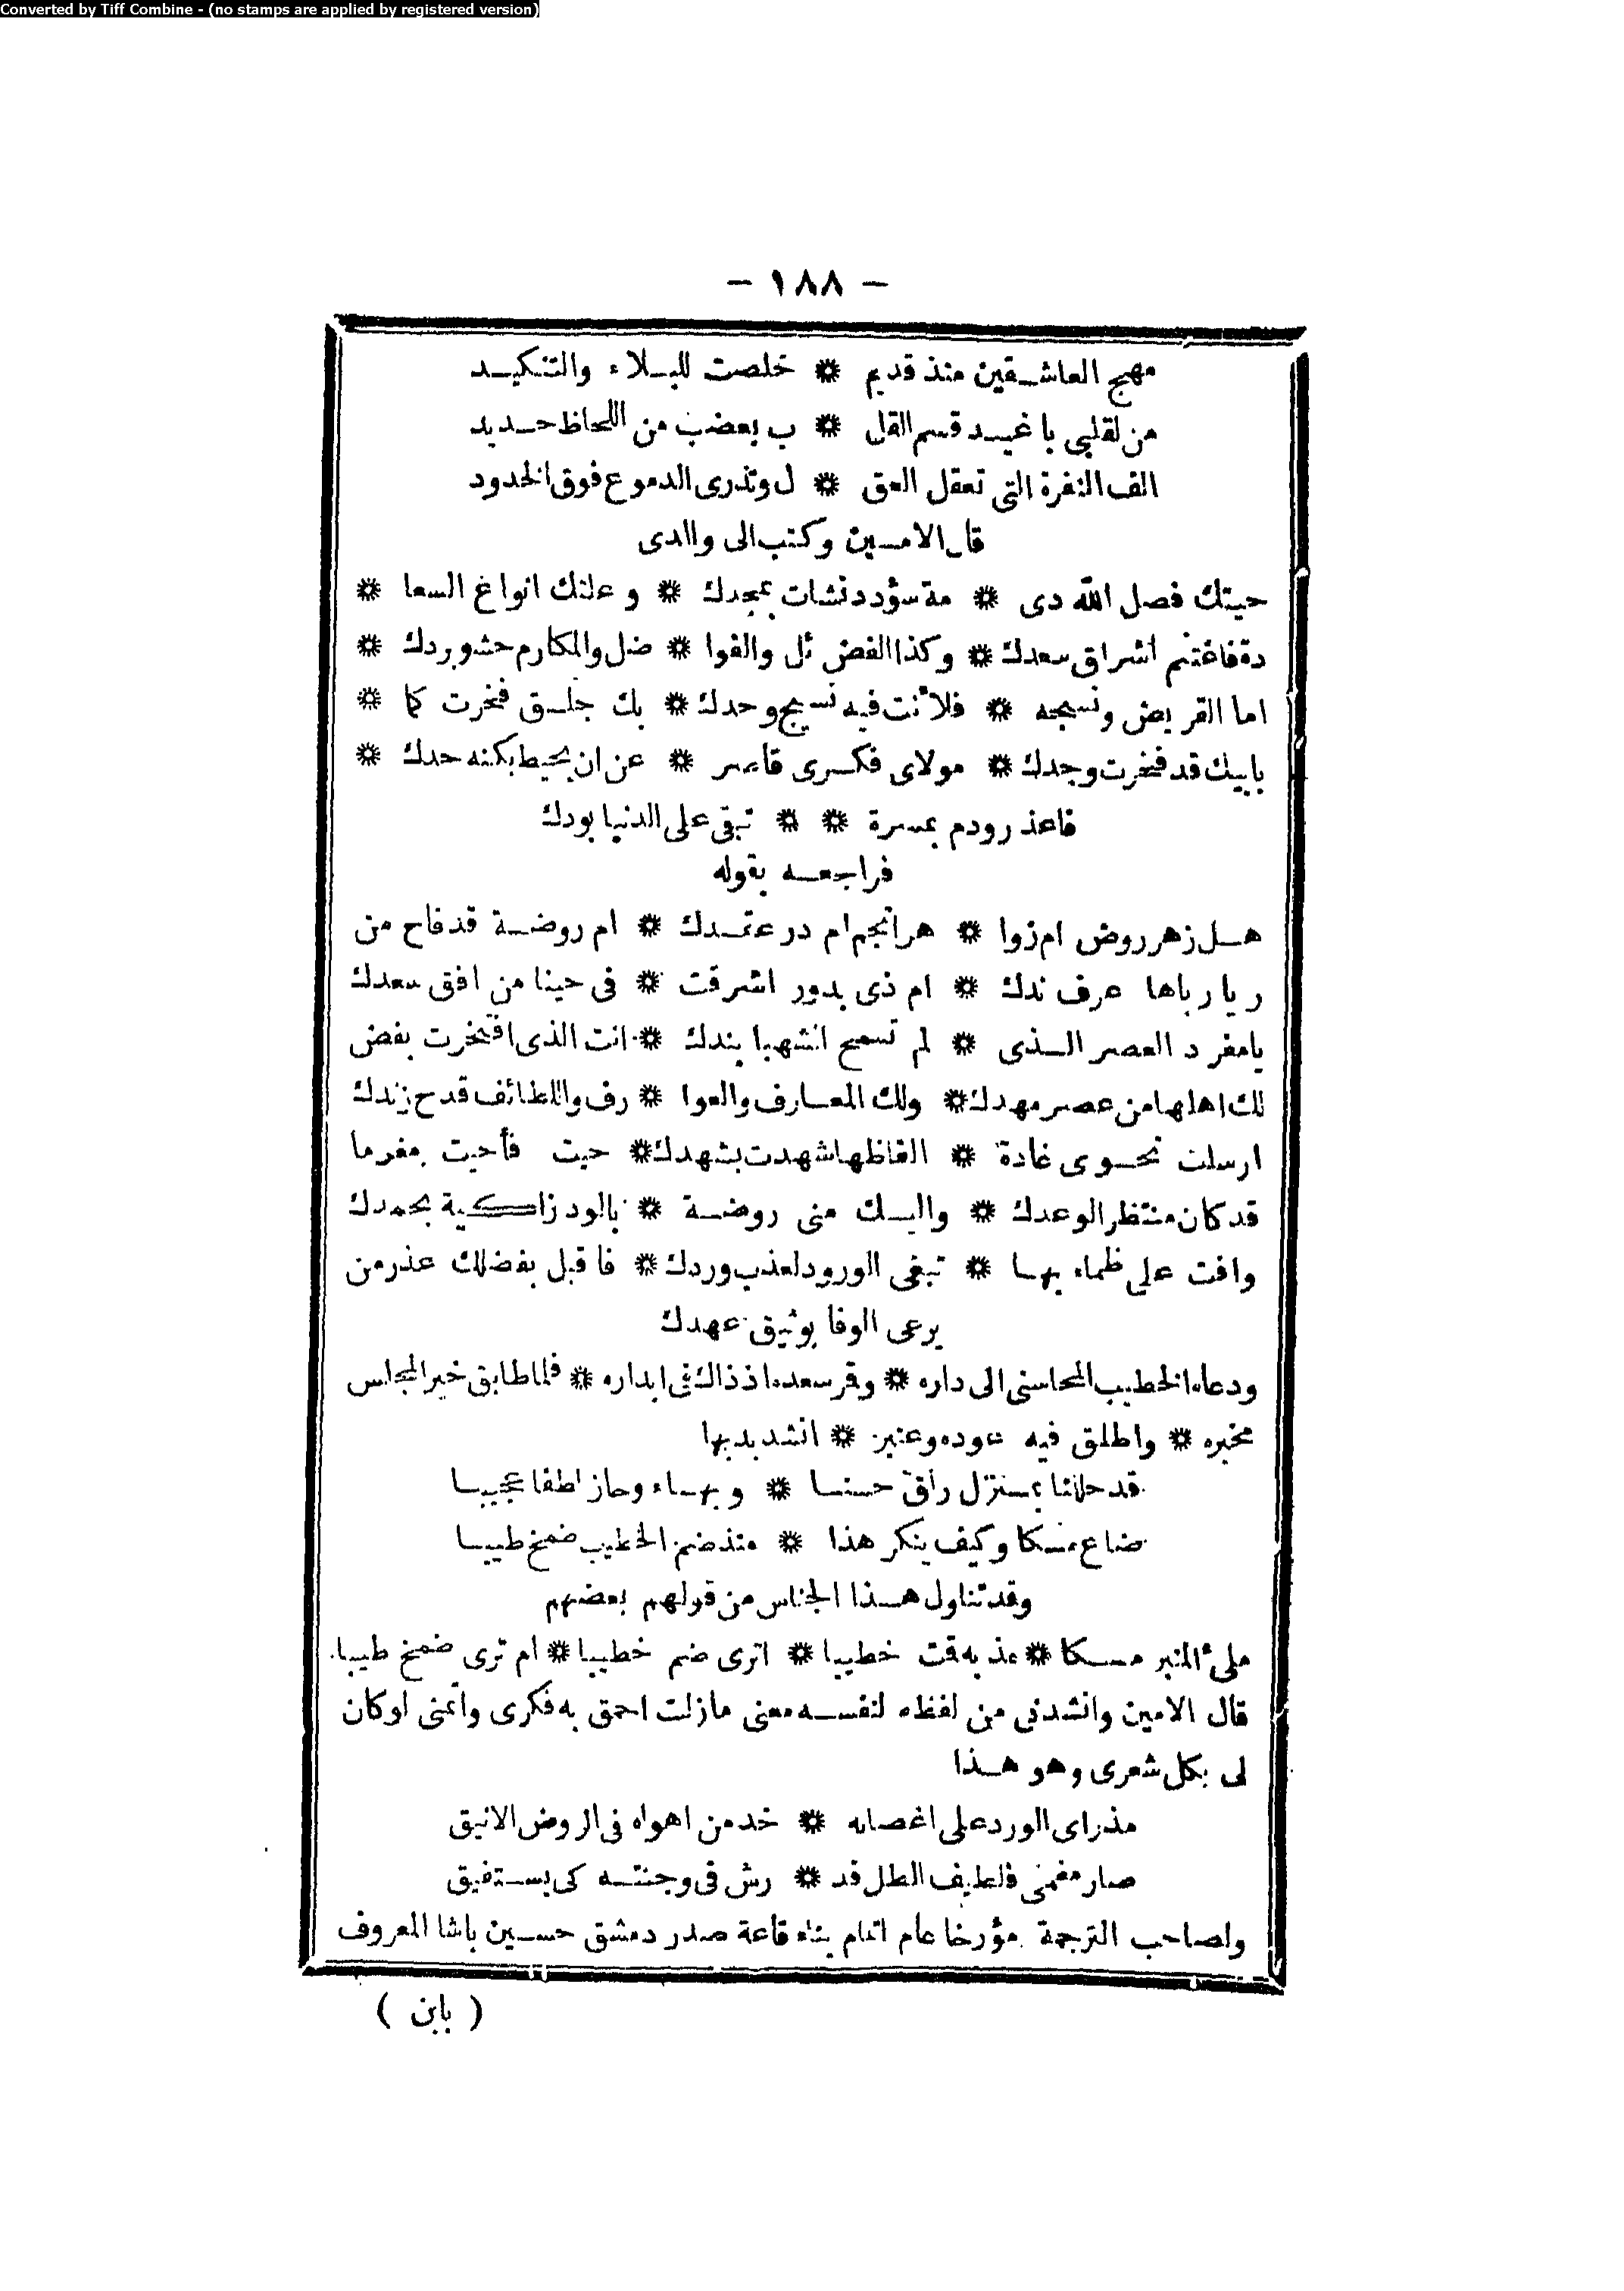 Converted by Tiff Combine - (no stamps are applied by registered version)
– ١٨٨ –
مهج العاشقين منذ قديم * خلصت للبلاء والتنكيد
من لقلبي باغيد قسم القل * ب بعضب من اللحاظ حديد
الف النفرة التي تعقل العق * ل وتذرى الدموع فوق الخدود
قال الامين وكتب الى والدى
حيتك فصل الله دى * مة سؤدد نشات بمجدك * وعلتك انواع السعا *
دة فاغتنم اشراق سعدك * وكذا الفضئل والفوا * ضل والمكارم حشو بردك *
اما القريض ونسجه * فلأنت فيه نسيج وحدك * بك جلق فخرت كما *
بابيك قد فخرت وجدك * مولاى فكرى قاصر * عن ان يحيط بكنه حدك *
فاعذر ودم بمسرة * * تبقى على الدنيا بودك
فراجعه بقوله
هل زهر روض ام زوا * هر انجم ام در عقدك * ام روضة قد فاح من
ريا رباها عرف ندك * ام ذى بدور اشرقت * فى حينا من افق سعدك
يا مفرد العصر الذى * لم تسمح الشهبا بندك * انت الذى افتخرت بفض
لك اهلها من عصر مهدك * ولك المعارف والعوا * رف واللطائف قدح زندك
ارسلت نحوى غادة * الفاظها شهدت بشهدك * حيت فأحيت مغرما
قد كان منتظر الوعدك * واليك منى روضة * بالود زاكية بحمدك
وافت على ظماء بها * تبغى الورود لعذب وردك * فاقبل بفضلك عذر من
يرعى الوفا بوثيق عهدك
ودعاه الخطيب المحاسنى الى داره * وقر سعدها اذ ذاك فى ابداره * فلما طابق خبر المجلس
مخبره * واطلق فيه عوده وعنبره * انشد بديها
قد حللنا بمنزل راق حسنا * وبهاء وحاز لطفا عجيبا
ضاع مسكا وكيف ينكر هذا * منذ ضم الخطيب ضمخ طيبا
وقد تناول هذا الجناس من قولهم بعضهم
ملىء المنبر مسكا * مذ به قمت خطيبا * اترى ضم خطيبا * ام ترى ضمخ طيبا
قال الامين وانشدنى من لفظه لنفسه معنى مازلت احمق به فكرى واتمنى لو كان
لى بكل شعرى وهو هذا
مذ راى الورد على اغصانه * خد من اهواه فى الروض الانيق
صار مغمى فلطيف الطل قد * رش فى وجنته كى يستفيق
ولصاحب الترجمة مؤرخا عام اتمام بناء قاعة صدر دمشق حسين باشا المعروف
( بابن )